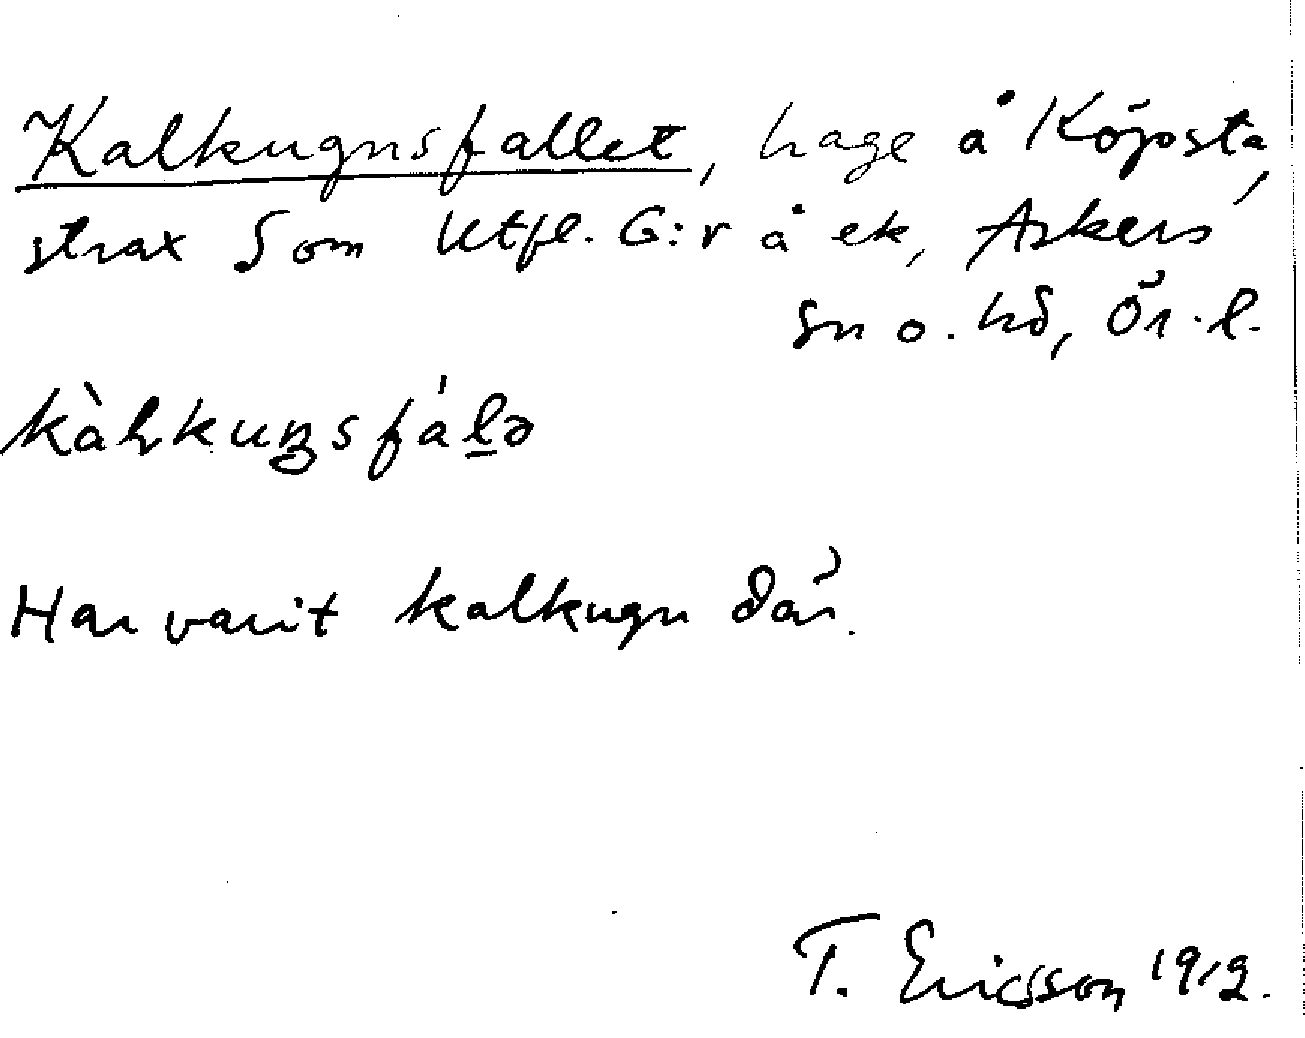 Kalkugnsfallet, hage å Köpsta,
strax S om Utfl. G:r å ek, Askers
sn o. hd, Ör. l.
Har varit kalkugn där.
T. Ericsson 1912.